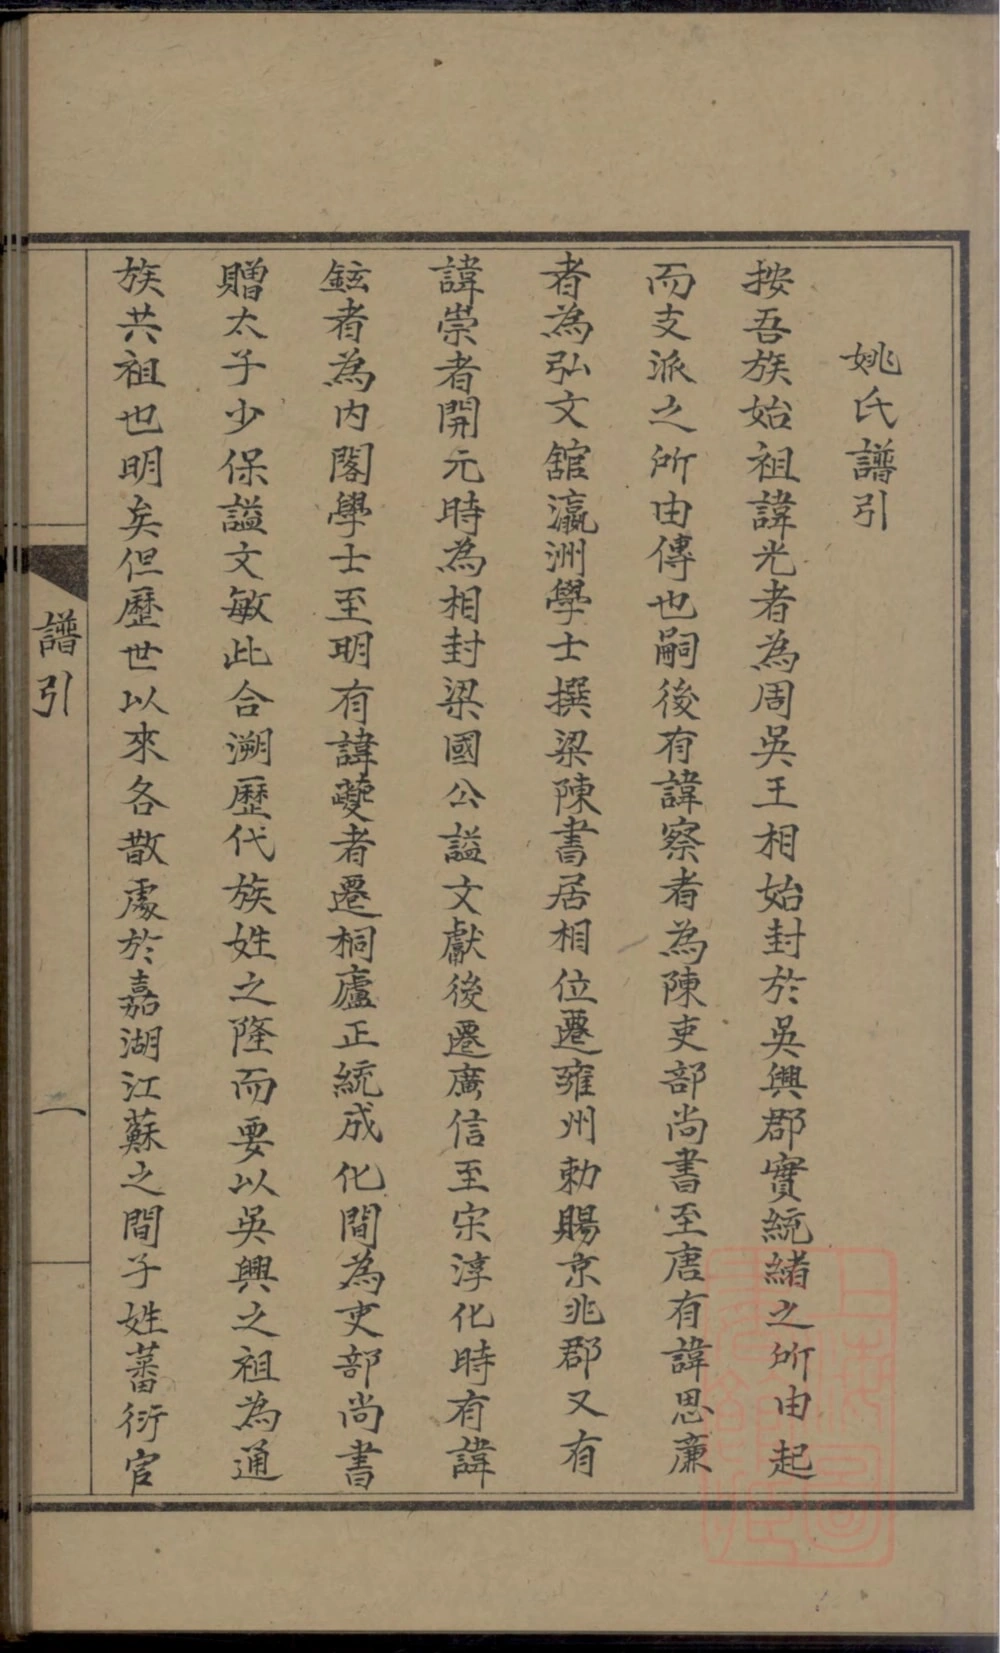 姚氏譜引
按吾族始祖諱光者為周吳王相始封於吳興郡實統緒之所由起
而支派之所由傳也嗣後有諱察者為陳吏部尚書至唐有諱思廉
者為弘文舘瀛洲學士撰梁陳書居相位遷雍州勅賜京兆郡又有
諱崇者開元時為相封梁國公諡文獻後遷廣信至宋淳化時有諱
鉉者為內閣學士至明有諱夔者遷桐廬正統成化間為吏部尚書
贈太子少保諡文敏此合溯歷代族姓之隆而要以吳興之祖為通
族共祖也明矣但歷世以來各散處於嘉湖江蘇之間子姓蕃衍官
譜引
一
上海圖書館藏